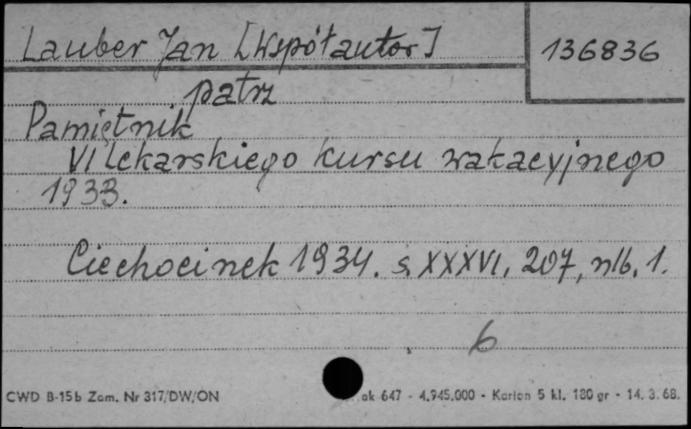 Lauber Jan [Współautor]
136836
patrz
Pamiętnik
VI Lekarskiego kursu wakacyjnego
1933.
Ciechocinek 1934. s. XXXVI, 207, nlb. 1.
6
CWD B-15b Zam. Nr 317/DW/ON
ak 647 - 4.945.000 - Karton 5 kl. 180 gr - 14. 3. 68.